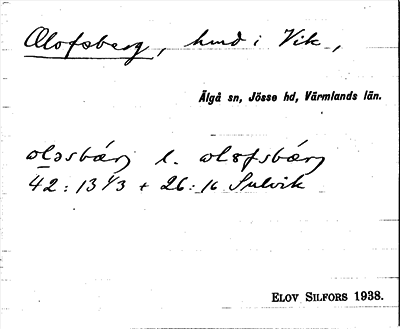 Olofsberg, hmd i Vik,
Älgå sn, Jösse hd, Värmlands län.
olɔsbárj l. olɔfsbárj
42: 13⅓ + 26: 16 Sulvik
ELOV SILFORS 1938.